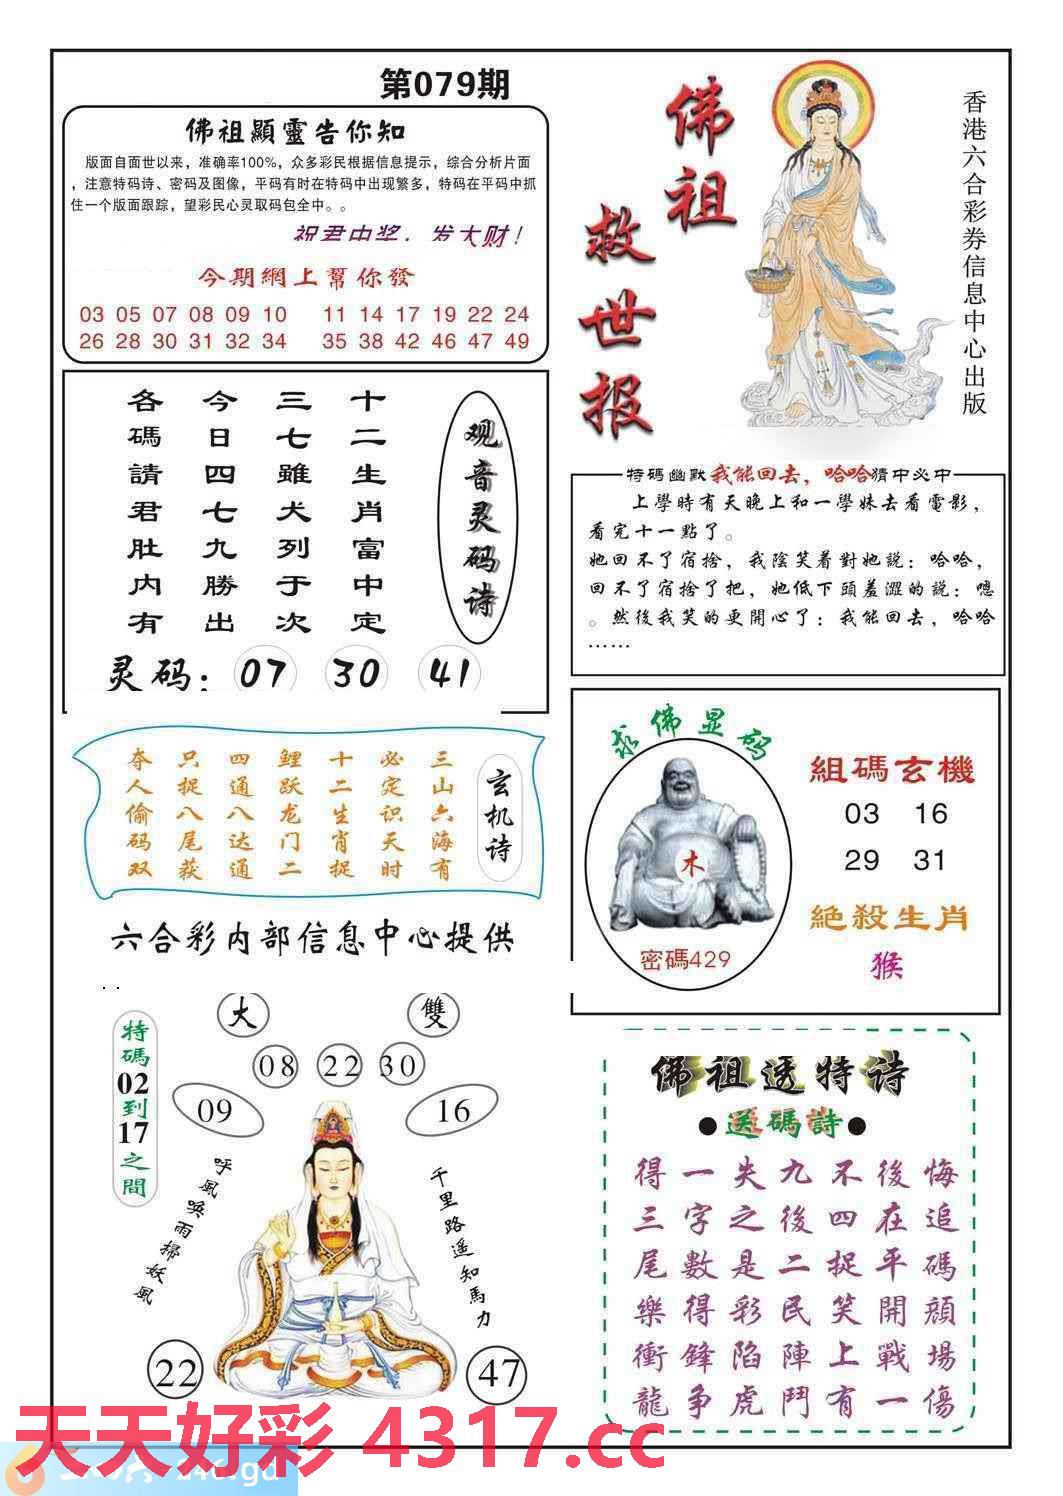 第079期
佛祖顯靈告你知
版面自面世以来，准确率100%，众多彩民根据信息提示，综合分析片面
，注意特码诗、密码及图像，平码有时在特码中出现繁多，特码在平码中抓
住一个版面跟踪，望彩民心灵取码包全中。。
祝君中奖，发大财！
今期網上幫你發
03 05 07 08 09 10 11 14 17 19 22 24
26 28 30 31 32 34 35 38 42 46 47 49
佛祖
救世报
香港六合彩券信息中心出版
观音灵码诗
十二生肖富中定
三七雖犬列于次
今日四七九勝出
各碼請君肚内有
灵码：07 30 41
特碼幽默我能回去，哈哈猜中必中
上學時有天晚上和一學妹去看電影，
看完十一點了。
她回不了宿捨，我陰笑着對她説：哈哈，
回不了宿捨了把，她低下頭羞澀的説：嗯
。然後我笑的更開心了：我能回去，哈哈
……
玄机诗
三山六海有
必定识天时
十二生肖捉
鲤跃龙门二
四通八达通
只捉八尾获
夺人偷码双
六合彩内部信息中心提供
求佛显码
木
密碼429
組碼玄機
03 16
29 31
絶殺生肖
猴
大
雙
08 22 30
09
16
特碼02到17之間
呼風唤雨掃妖風
千里路遥知馬力
22
47
佛祖透特诗
●送碼詩●
得一失九不後悔
三字之後四在追
尾數是二捉平碼
樂得彩民笑開顔
衝鋒陷陣上戰場
龍争虎鬥有一傷
天天好彩 4317.cc
246.gd